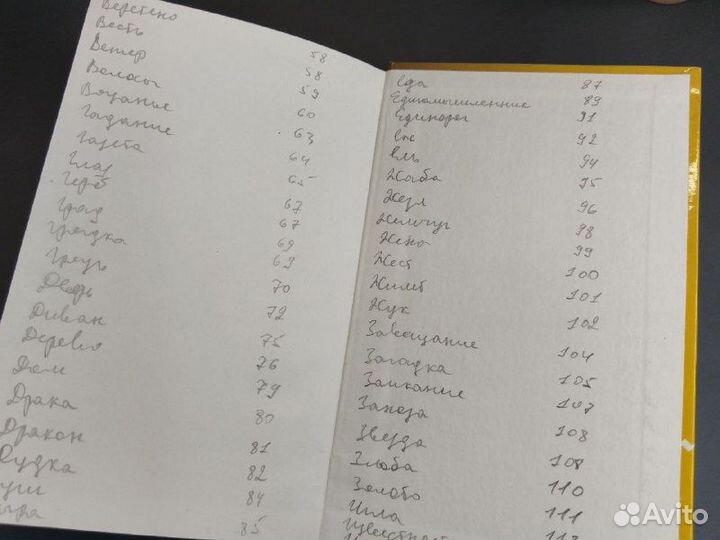 Веретено 58
Весть 58
Ветер 59
Волосы 60
Вязание 63
Гадание 64
Газета 65
Глаз 67
Герб 67
Град 69
Грядка 69
Грудь 70
Дверь 72
Диван 75
Деревня 76
Дом 79
Драка 80
Дракон 81
Дудка 82
уши 84
85
Еда 87
Единомышленник 89
Единорог 91
Ёж 92
Ель 94
Жаба 95
Жезл 96
Жемчуг 98
Жена 99
Жест 100
Жилет 101
Жук 102
Завещание 104
Загадка 105
Заикание 107
Заноза 108
Звезда 109
Злоба 110
Золото 111
Игла 113
Avito